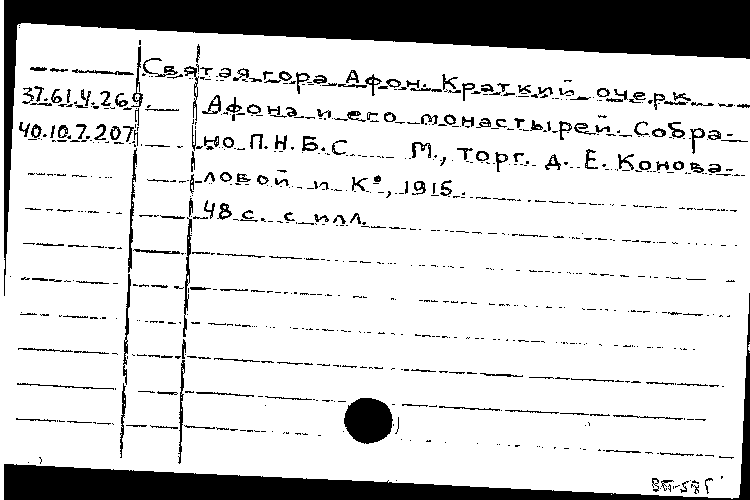 Святая гора Афон. Краткий очерк
37.61.4.269. Афона и его монастырей. Собра-
40.10.7.207 но П.Н.Б.С М., торг. д. Е. Конова-
ловой и К°, 1915.
48 с. с илл.